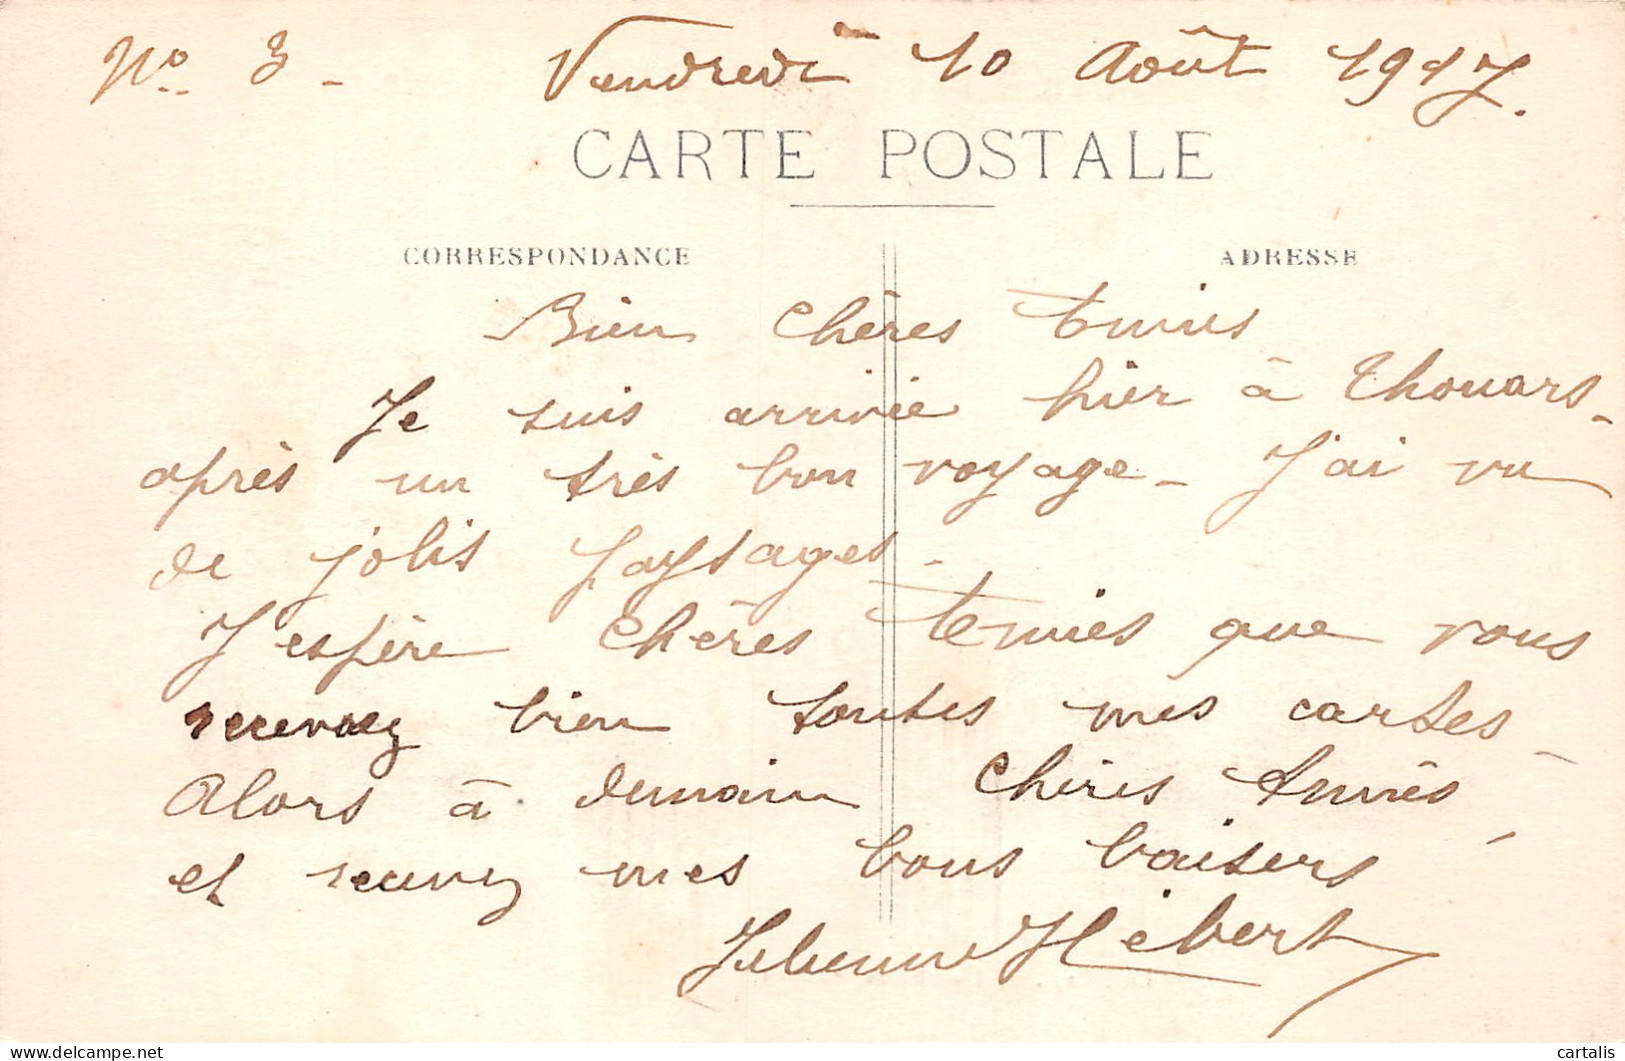 No. 3 - Vendredi 10 Août 1917.
CARTE POSTALE
CORRESPONDANCE ADRESSE
Bien Chères
Je suis arrivée hier à Thouars -
après un très bon voyage - J'ai vu
de jolis paysages -
J'espère Chères que vous
recevrez bien toutes mes cartes -
Alors à demain Chères
et recevez mes bons baisers
Hébert
cartalis
delcampe.net